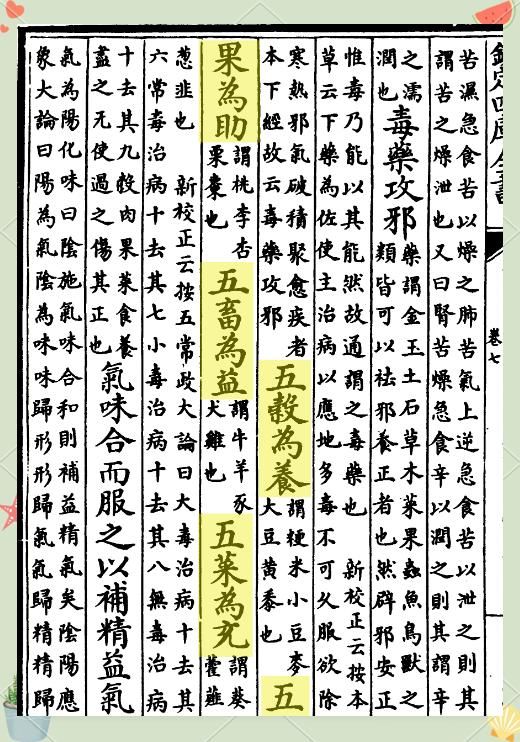 欽定四庫全書
卷七
苦濕急食苦以燥之肺苦氣上逆急食苦以泄之則其
謂苦之燥泄也又曰腎苦燥急食辛以潤之則其謂辛
之濡
潤也
毒藥攻邪
藥謂金玉土石草木菜果蟲魚鳥獸之
類皆可以祛邪養正者也然辟邪安正
惟毒乃能以其能然故通謂之毒藥也 新校正云按本
草云下藥為佐使主治病以應地多毒不可久服欲除
寒熱邪氣破積聚愈疾者
本下經故云毒藥攻邪
五穀為養
謂粳米小豆麥
大豆黃黍也
五
果為助
謂桃李杏
栗棗也
五畜為益
謂牛羊豕
犬雞也
五菜為充
謂葵
藿薤
葱韭也 新校正云按五常政大論曰大毒治病十去其
六常毒治病十去其七小毒治病十去其八無毒治病
十去其九穀肉果菜食養
盡之无使過之傷其正也
氣味合而服之以補精益氣
氣為陽化味曰陰施氣味合和則補益精氣矣陰陽應
象大論曰陽為氣陰為味味歸形形歸氣氣歸精精歸